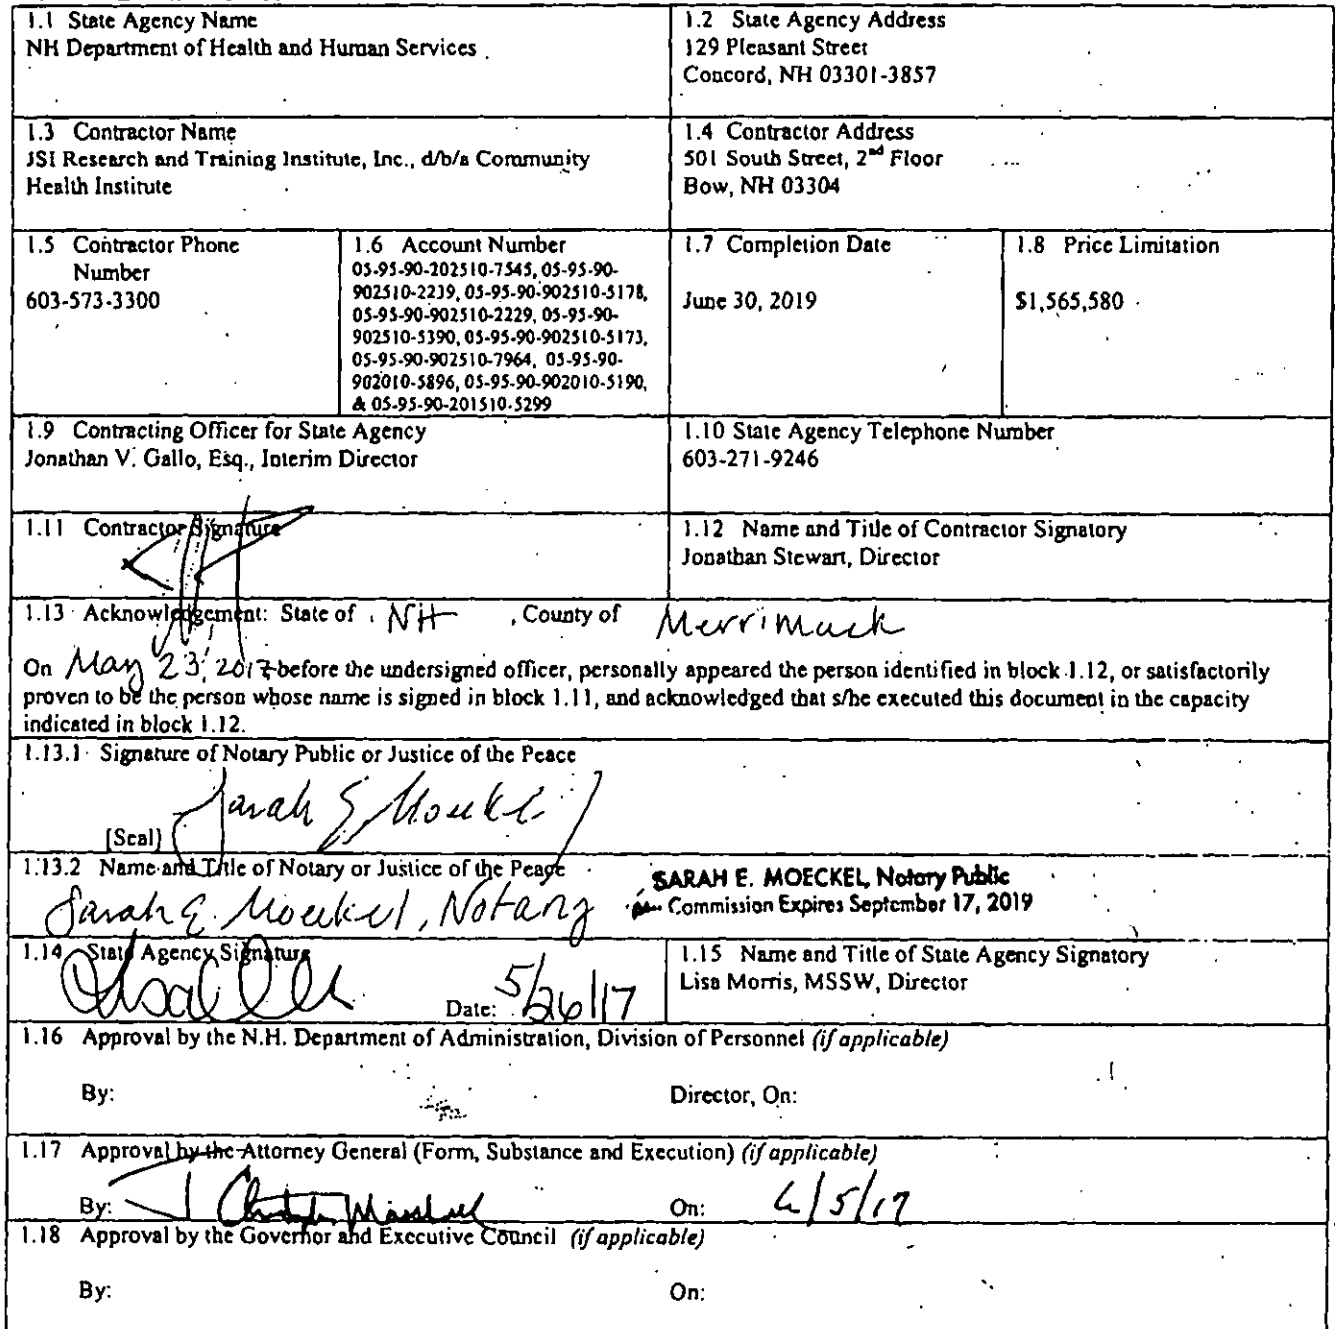 1.1 State Agency Name
NH Department of Health and Human Services
1.2 State Agency Address
129 Pleasant Street
Concord, NH 03301-3857
1.3 Contractor Name
JSI Research and Training Institute, Inc., d/b/a Community
Health Institute
1.4 Contractor Address
501 South Street, 2nd Floor
Bow, NH 03304
1.5 Contractor Phone
Number
603-573-3300
1.6 Account Number
05-95-90-202510-7545, 05-95-90-
902510-2239, 05-95-90-902510-5178,
05-95-90-902510-2229, 05-95-90-
902510-5390, 05-95-90-902510-5173,
05-95-90-902510-7964, 05-95-90-
902010-5896, 05-95-90-902010-5190,
& 05-95-90-201510-5299
1.7 Completion Date
June 30, 2019
1.8 Price Limitation
$1,565,580
1.9 Contracting Officer for State Agency
Jonathan V. Gallo, Esq., Interim Director
1.10 State Agency Telephone Number
603-271-9246
1.11 Contractor Signature
1.12 Name and Title of Contractor Signatory
Jonathan Stewart, Director
1.13 Acknowledgement: State of NH , County of Merrimack
On May 23, 2017 before the undersigned officer, personally appeared the person identified in block 1.12, or satisfactorily
proven to be the person whose name is signed in block 1.11, and acknowledged that s/he executed this document in the capacity
indicated in block 1.12.
1.13.1 Signature of Notary Public or Justice of the Peace
Sarah E Moeckel
[Seal]
1.13.2 Name and Title of Notary or Justice of the Peace
Sarah E. Moeckel, Notary
SARAH E. MOECKEL, Notary Public
Commission Expires September 17, 2019
1.14 State Agency Signature
Date: 5/26/17
1.15 Name and Title of State Agency Signatory
Lisa Morris, MSSW, Director
1.16 Approval by the N.H. Department of Administration, Division of Personnel (if applicable)
By: Director, On:
1.17 Approval by the Attorney General (Form, Substance and Execution) (if applicable)
By: On: 6/5/17
1.18 Approval by the Governor and Executive Council (if applicable)
By: On: